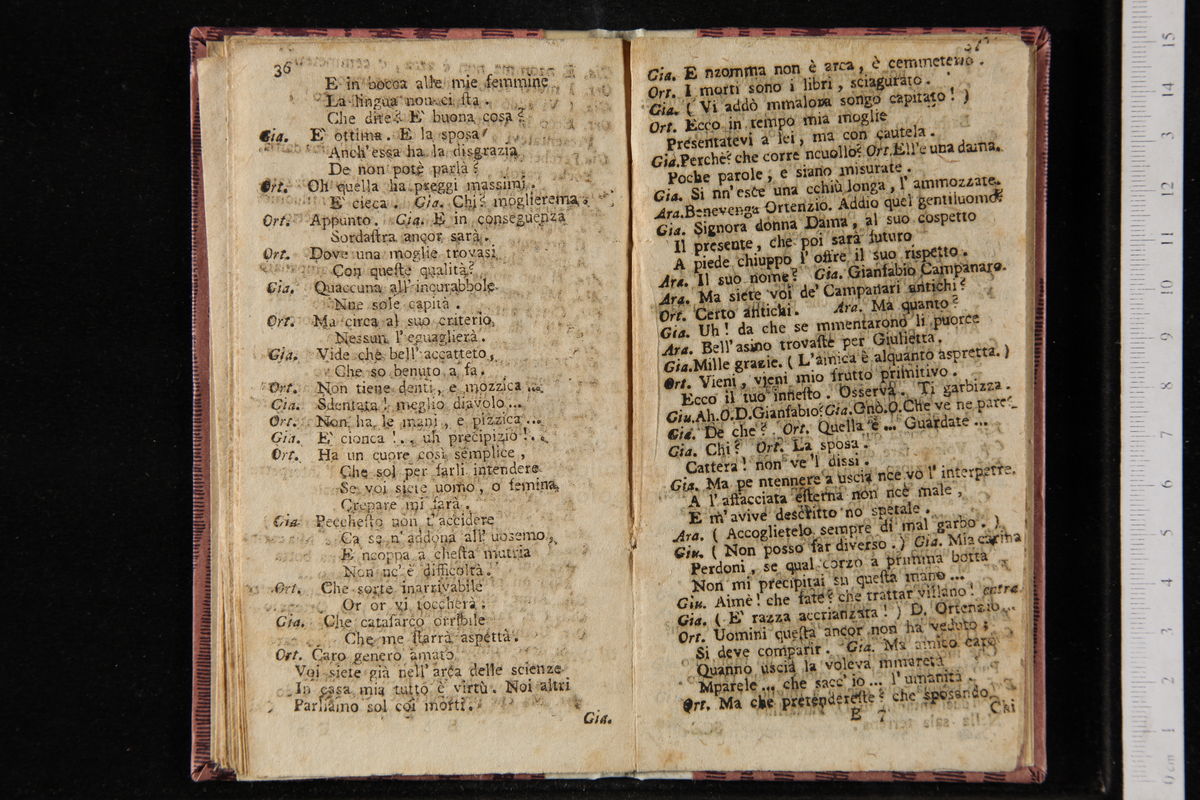 36
E in bocca alle mie femmine
La lingua non ci sta.
Che dite? E' buona cosa?
Gia. E' ottima. E la sposa
Anch'essa ha la disgrazia
De non potè parlà?
Ort. Oh quella ha preggi massimi.
E' cieca. Gia. Chi? moglierema.
Ort. Appunto. Gia. E in conseguenza
Sordastra ancor sarà.
Ort. Dove una moglie trovasi
Con queste qualità?
Gia. Quaccuna all'incurabbole
Nne sole capità.
Ort. Ma circa al suo criterio,
Nessun l'eguaglierà.
Gia. Vide che bell'accatteto,
Che so benuto a fa.
Ort. Non tiene denti, e mozzica ...
Gia. Sdentata! meglio diavolo ...
Ort. Non ha le mani, e pizzica ...
Gia. E' cionca!.. uh precipizio!..
Ort. Ha un cuore così semplice,
Che sol per farli intendere
Se voi siete uomo, o femina,
Crepare mi farà.
Gia. Pecchesto non t'accidere
Ca se n'addona all'uosemo,
E ncoppa a chesta mutria
Non nc'è difficoltà.
Ort. Che sorte inarrivabile
Or or vi toccherà:
Gia. Che catafarco orribile
Che me starrà aspettà.
Ort. Caro genero amato
Voi siete già nell'arca delle scienze
In casa mia tutto è virtù. Noi altri
Parliamo sol coi morti.
Gia.
Gia. E nzomma non è arca, è cemmeterio.
Ort. I morti sono i libri, sciagurato.
Gia. ( Vi addò mmalora songo capitato! )
Ort. Ecco in tempo mia moglie
Presentatevi a lei, ma con cautela.
Gia. Perchè? che corre ncuollo? Ort. Ell'e una dama.
Poche parole, e siano misurate.
Gia. Si nn'esce una cchiù longa, l'ammozzate.
Ara. Benevenga Ortenzio. Addio quel gentiluomo.
Gia. Signora donna Dama, al suo cospetto
Il presente, che poi sarà futuro
A piede chiuppo l'offre il suo rispetto.
Ara. Il suo nome? Gia. Gianfabio Campanaro.
Ara. Ma siete voi de' Campanari antichi?
Ort. Certo antichi. Ara. Ma quanto?
Gia. Uh! da che se mmentarono li puorce
Ara. Bell'asino trovaste per Giulietta.
Gia. Mille grazie. ( L'amica è alquanto aspretta. )
Ort. Vieni, vieni mio frutto primitivo.
Ecco il tuo innesto. Osserva. Ti garbizza.
Giu. Ah.O.D.Gianfabio? Gia. Gnò.O.Che ve ne pare?
Gia. De che? Ort. Quella è ... Guardate ...
Gia. Chi? Ort. La sposa.
Cattera! non ve'l dissi.
Gia. Ma pe ntennere a uscia nce vò l'interpetre.
A l'affacciata esterna non nce male,
E m'avive descritto no spetale.
Ara. ( Accoglietelo sempre di mal garbo. )
Giu. ( Non posso far diverso. ) Gia. Mia carina
Perdoni, se qual corzo a primma botta
Non mi precipitai su questa mano ...
Giu. Aimè! che fate? che trattar villano! entra
Gia. ( E' razza accrianzata! ) D. Ortenzio ...
Ort. Uomini questa ancor non ha veduto:
Si deve comparir. Gia. Ma amico caro
Quanno uscià la voleva mmaretà
Mparele ... che sacc'io ... l'umanità.
Ort. Ma che pretendereste? che sposando
Chi